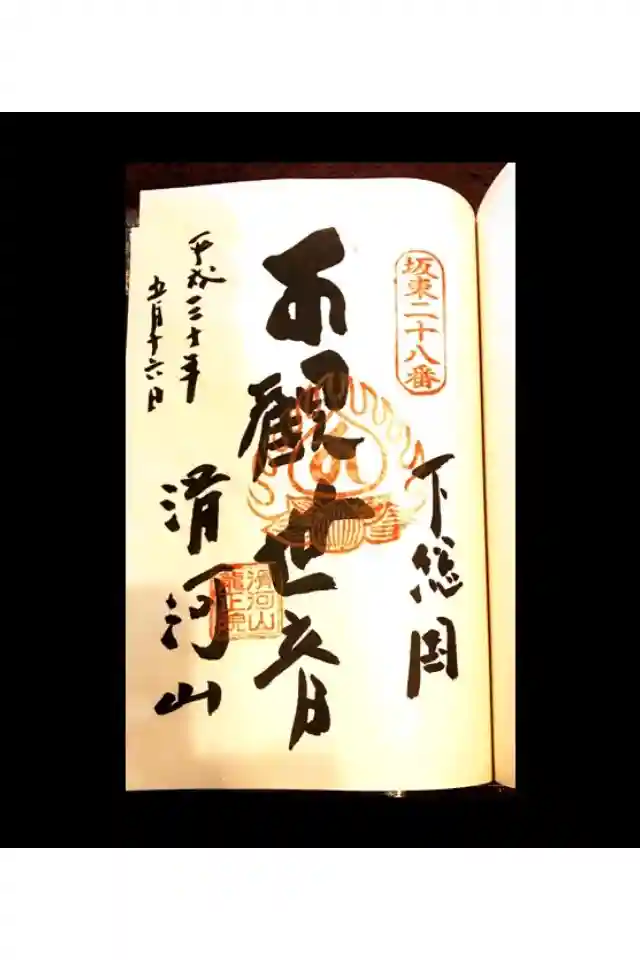 坂東二十八番
下総国
観世音
滑河山
滑河山
龍正院
平成三十年
五月十六日